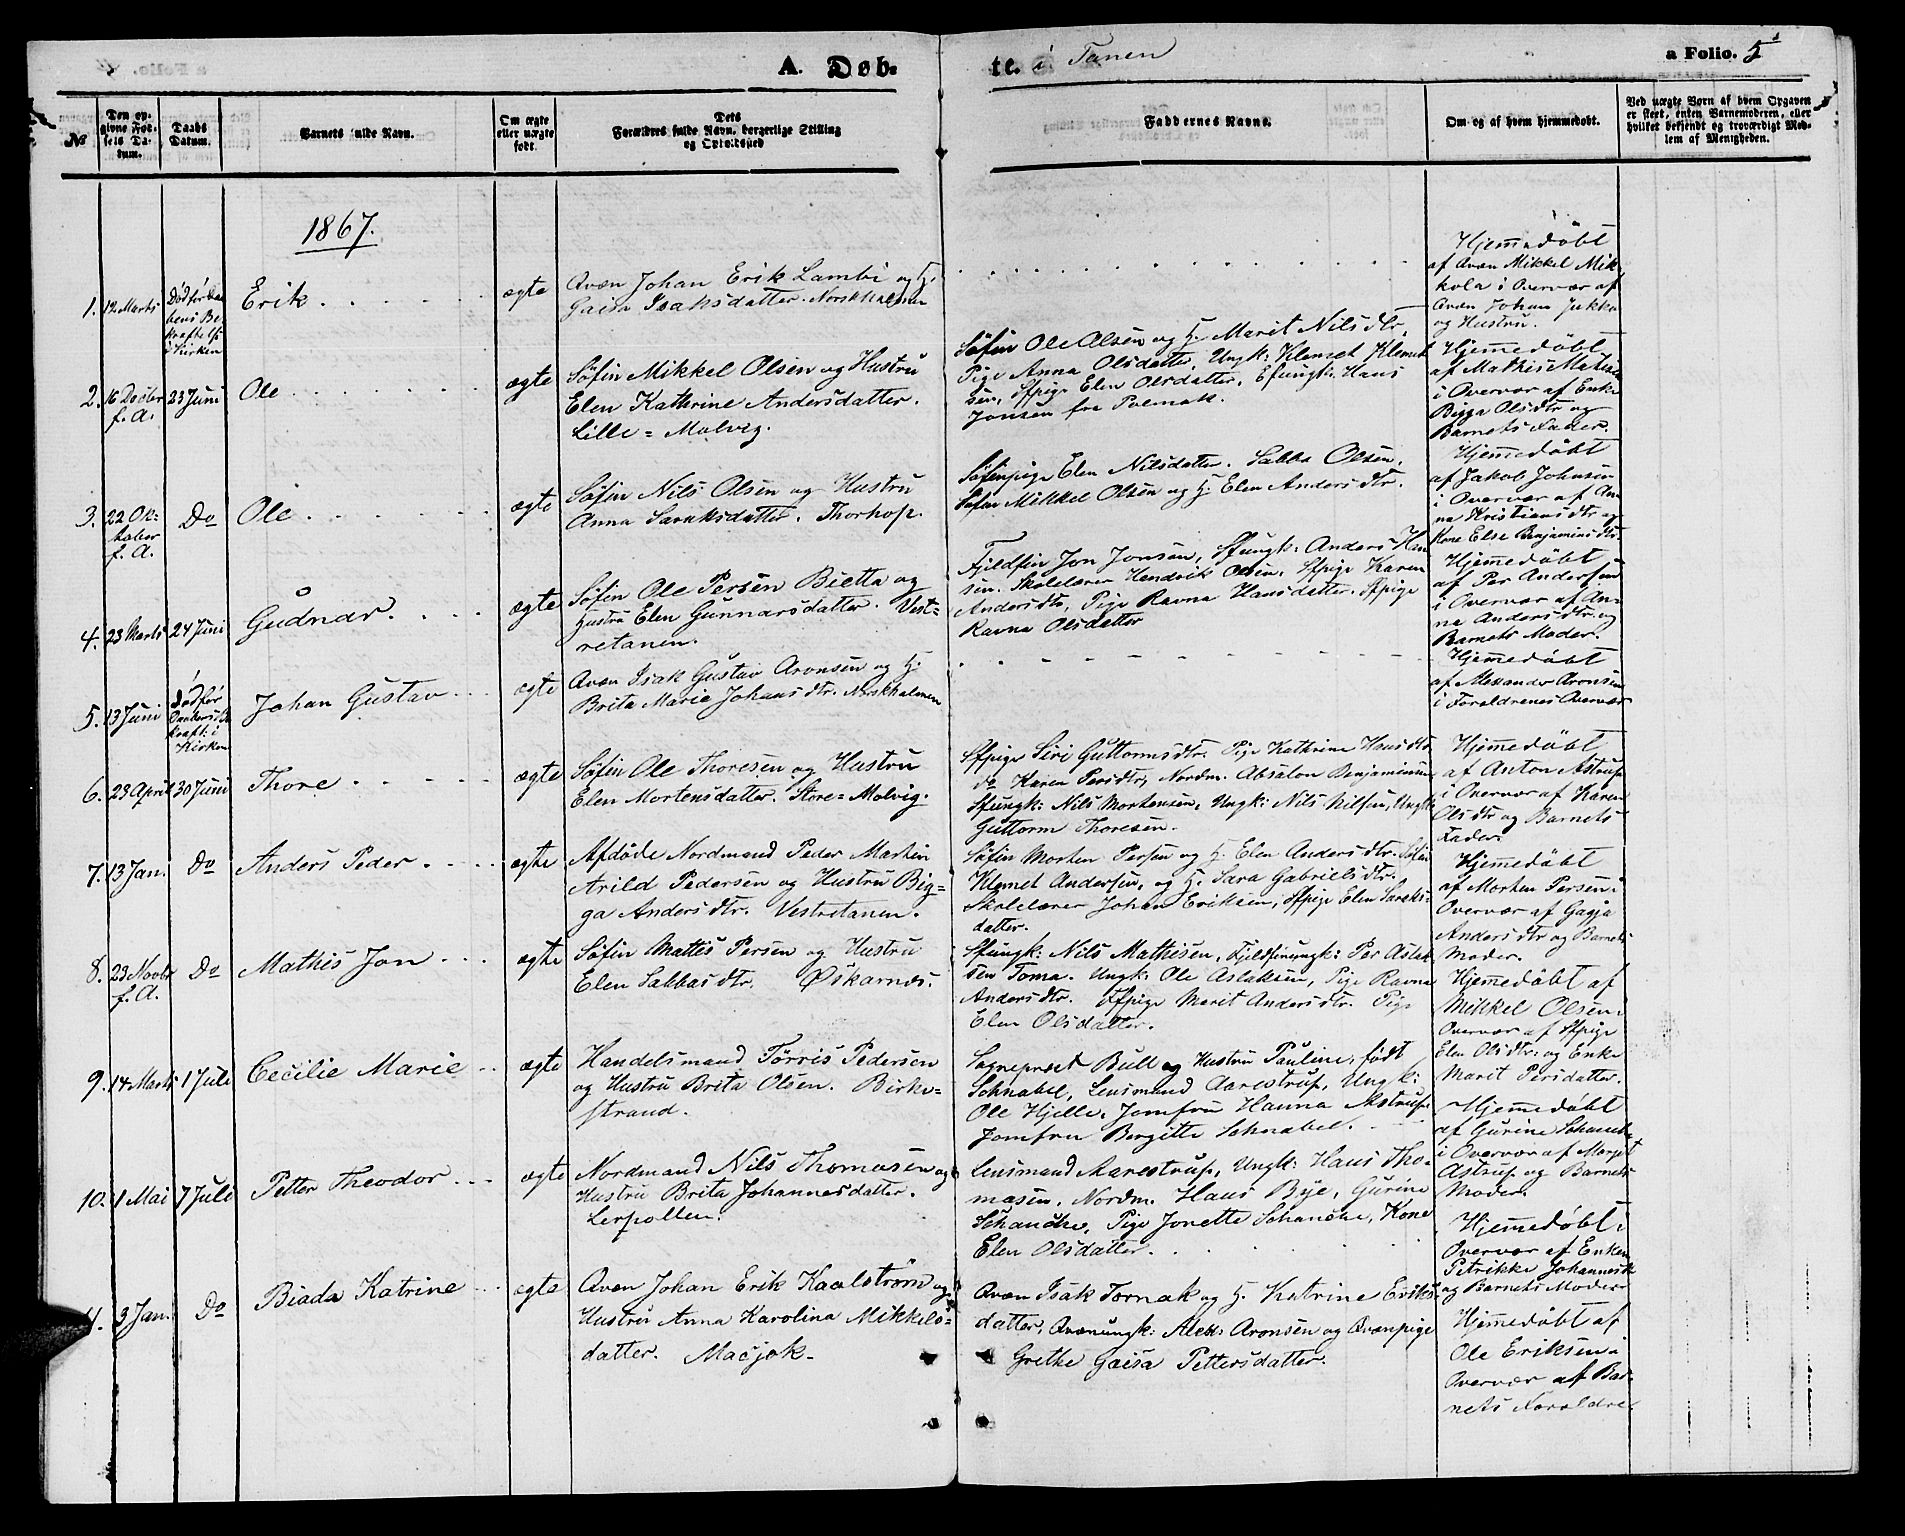 A. Døb-
te. i Tanen
a Folio. 5
№
Den op-
givne Fød-
sels Da-
tum.
Daabs
Datum.
Barnets fulde Navn.
Om ægte
eller uægte
født.
Dets
Forældres fulde Navn, borgerlige Stilling
og Opholdssted
Faddernes Navne.
Om og af hvem hjemmedøbt.
Ved uægte Børn af hvem Opgaven
er skeet, enten Barnemoderen, eller
hvilket bekjendt og troværdigt Med-
lem af Menigheden.
1867.
1. 12 Marts
Død før Daa-
bens Be-
kræftelse
i Kirken
Erik
ægte
Qvæn Johan Erik Lambi og H.
Gaisa Isaksdatter. Norskholmen
Hjemmedøbt
af Qvæn Mikkel Mik-
kola i Overvær af
Qvæn Johan Jukka
og Hustru.
2. 16 Decbr
f. A.
23 Juni
Ole
ægte
Søfin Mikkel Olsen og Hustru
Elen Kathrine Andersdatter.
Lille-Molvig.
Søfin Ole Olsen og H. Marit Nilsdtr,
Pige Anna Olsdatter, Ungk: Klemet Klemet-
sen, Sfpige Elen Olsdatter, Efungk: Hans
Jonsen fra Polmak.
Hjemmedøbt
af Mathis Mathisen
i Overvær af Enke
Bigga Olsdtr og
Barnets Fader.
3. 22 Ok-
tober
f. A.
Do
Ole
ægte
Søfin Nils Olsen og Hustru
Anna Saraksdatter. Thorhop.
Søfinpige Elen Nilsdatter. Sabba Olsen.
Søfin Mikkel Olsen og H. Elen Andersdtr.
Hjemmedøbt
af Jakob Johnsen
i Overvær af An-
na Kristiansdtr og
Kone Else Benjaminsdtr.
4. 23 Marts
24 Juni
Gudnar
ægte
Søfin Ole Persen Bietta og
Hustru Elen Gunnarsdatter. Vest-
retanen.
Fjeldfin Jon Jonsen, Sfungk: Anders Han-
sen. Skolelærer Hendrik Olsen, Sfpige Karen
Andersdtr, Pige Ravna Hansdatter. Sfpige
Ravna Olsdatter
Hjemmedøbt
af Per Andersen
i Overvær af An-
na Andersdtr og
Barnets Moder.
5. 13 Juni
Død før
Daabens Be-
kræft: i
Kirken
Johan Gustav
ægte
Qvæn Isak Gustav Aronsen og H.
Brita Marie Johansdtr. Norskholmen
Hjemmedøbt
af Alexander Aronsen
i Forældrenes Overvær
6. 23 April
30 Juni
Thore
ægte
Søfin Ole Thoresen og Hustru
Elen Mortensdatter. Store-Molvig.
Sfpige Siri Guttormsdtr. Pige Kathrine Hansdtr
do Karen Persdtr, Nordm. Absalon Benjaminsen,
Sfungk: Nils Mortensen, Ungk: Nils Nilsen, Ungk:
Guttorm Thoresen.
Hjemmedøbt
af Anton Astrup
i Overvær af Karen
Olsdtr og Barnets
Fader.
7. 13 Jan.
Do
Anders Peder
ægte
Afdøde Nordmand Peder Martin
Arild Pedersen og Hustru Big-
ga Andersdtr. Vestretanen.
Søfin Morten Persen og H. Elen Andersdtr. Søfin
Klemet Andersen, og H. Sara Gabrielsdtr.
Skolelærer Johan Eriksen, Sfpige Elen Saraks-
datter.
Hjemmedøbt
af Morten Persen i
Overvær af Gagja
Andersdtr og Barnets
Moder.
8. 23 Novbr
f. A.
Do
Mathis Jon
ægte
Søfin Mattis Persen og Hustru
Elen Sabbasdtr. Øskarnes.
Sfungk: Nils Mathisen, Fjeldfinungk: Per Aslak-
sen Toma. Ungk: Ole Aslaksen, Pige Ravna
Andersdtr. Sfpige Marit Andersdtr. Pige
Elen Olsdatter.
Hjemmedøbt af
Mikkel Olsen i
Overvær af Sfpige
Elen Olsdtr. og Enke
Marit Persdatter.
9. 14 Marts
1 Juli
Cecilie Marie
ægte
Handelsmand Tørris Pedersen
og Hustru Brita Olsen. Birke-
strand.
Sognepræst Bull og Hustru Pauline, født
Schnabel, Lensmand Aarestrup, Ungk:
Ole Hjelle, Jomfru Hanna Astrup.
Jomfru Bergitte Schnabel.
Hjemmedøbt
af Gurine Schanche
i Overvær af Margit
Astrup og Barnets
Moder.
10. 1 Mai
7 Juli
Petter Theodor
ægte
Nordmand Nils Thomasen og
Hustru Brita Johannesdatter.
Lerpollen.
Lensmand Aarestrup, Ungk: Hans Tho-
masen, Nordm. Hans Bye, Gurine
Schanche, Pige Jonette Schanche, Kone
Elen Olsdatter.
Hjemmedøbt i
Overvær af Enken
Petrikke Johannesdtr
og Barnets Moder
11. 3 Jan.
Do
Biada Katrine
ægte
Qvæn Johan Erik Kaalstrøm og
Hustru Anna Karolina Mikkels-
datter. Masjok.
Qvæn Isak Tornak og H. Katrine Eriks-
datter, Qvænungk: Alex: Aronsen og Qvænpige
Grethe Gaisa Pettersdatter.
Hjemmedøbt af
Ole Eriksen i
Overvær af Bar-
nets Forældre.